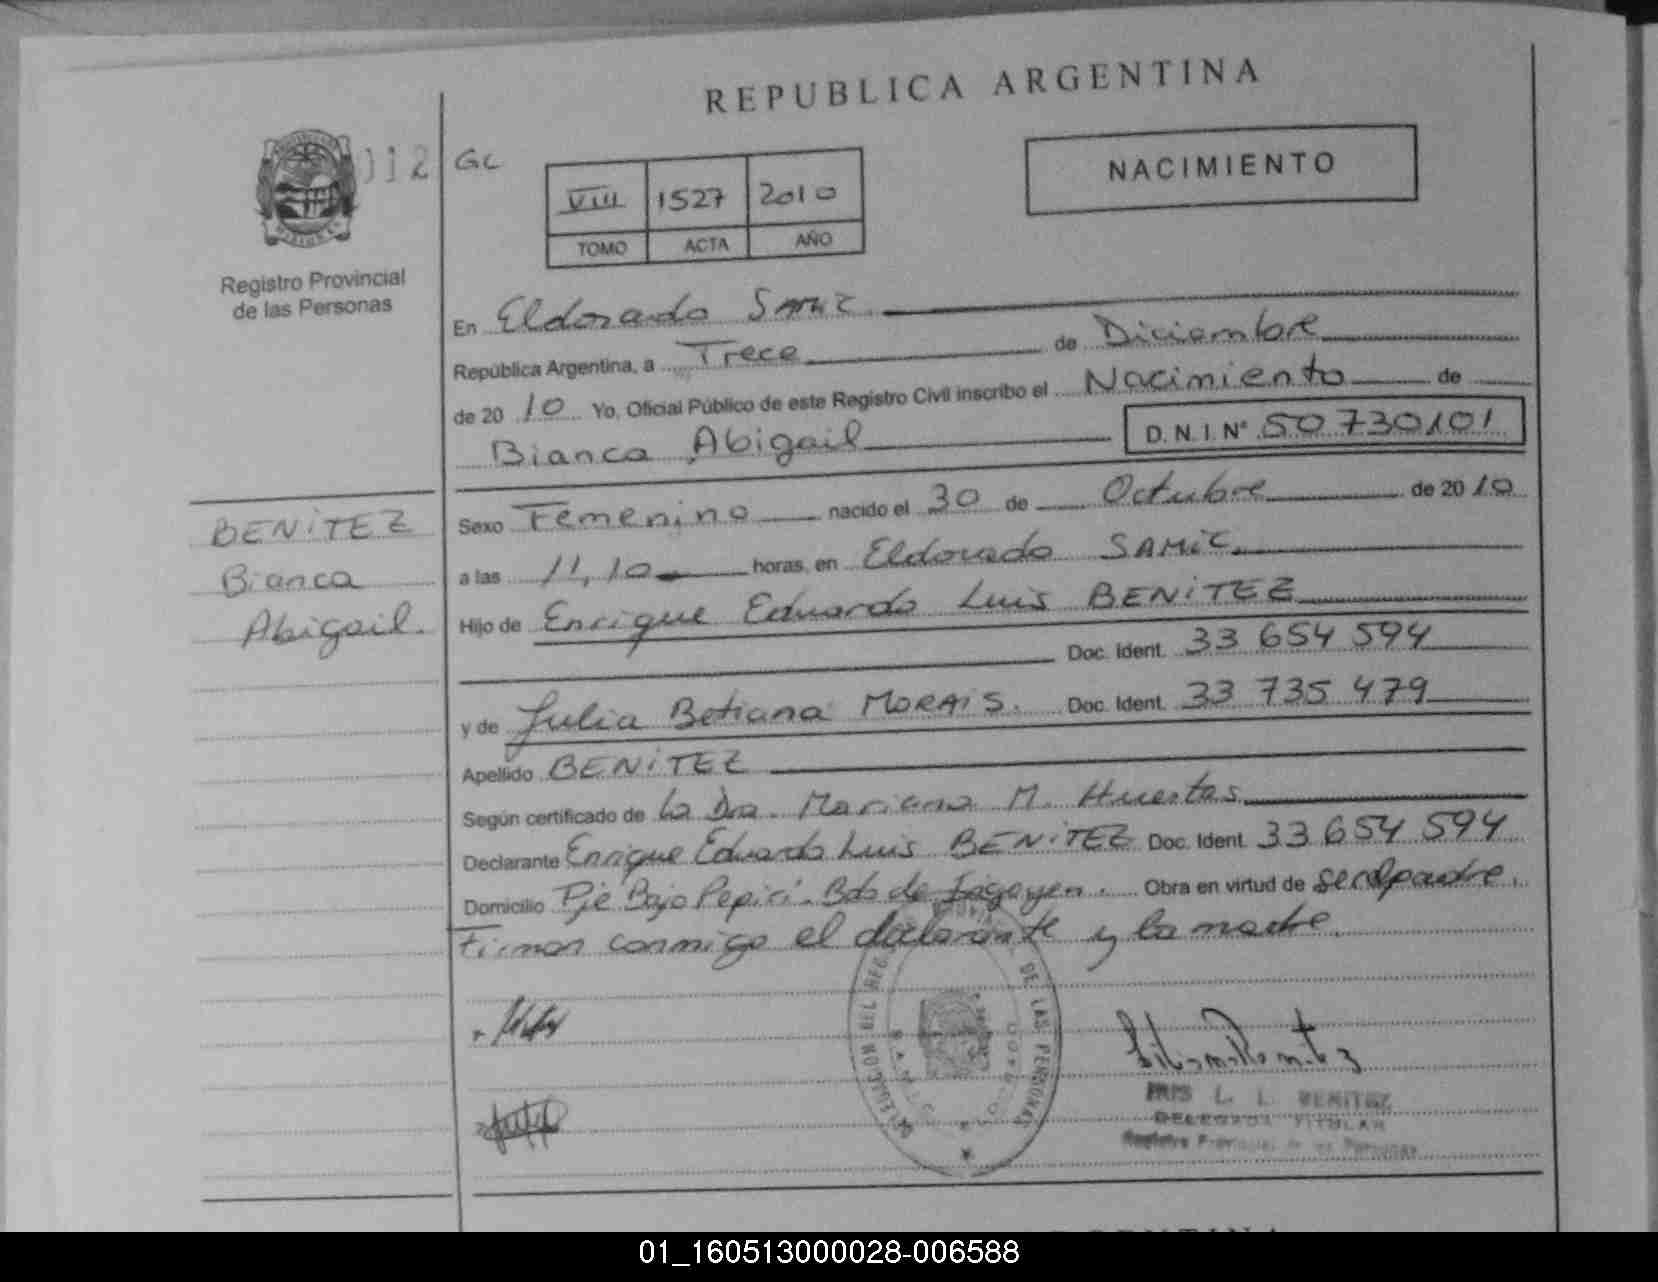 REPUBLICA ARGENTINA
112 GC
NACIMIENTO
VIII 1527 2010
TOMO ACTA AÑO
Registro Provincial
de las Personas
En Eldorado SAMIC
República Argentina, a Trece de Diciembre
de 20 10 Yo, Oficial Público de este Registro Civil inscribo el Nacimiento de
Bianca Abigail D.N.I. Nº 50 730101
BENiTEZ
Bianca
Abigail.
Sexo Femenino nacido el 30 de Octubre de 20 10
a las 11,10 horas, en Eldorado SAMiC
Hijo de Enrique Eduardo Luis BENiTEZ
Doc. Ident. 33 654 594
y de Julia Betiana MORAiS. Doc. Ident. 33 735 479
Apellido BENiTEZ
Según certificado de la Dra. Mariana M. Huertas
Declarante Enrique Eduardo Luis BENiTEZ Doc. Ident. 33 654 594
Domicilio Pje Bajo Pepiri. Bdo de Irigoyen. Obra en virtud de ser padre.
Firman conmigo el declarante y la madre.
DE LAS PERSONAS
IRIS L. I. BENITEZ
DELEGADA TITULAR
Registro Provincial de las Personas
01_160513000028-006588